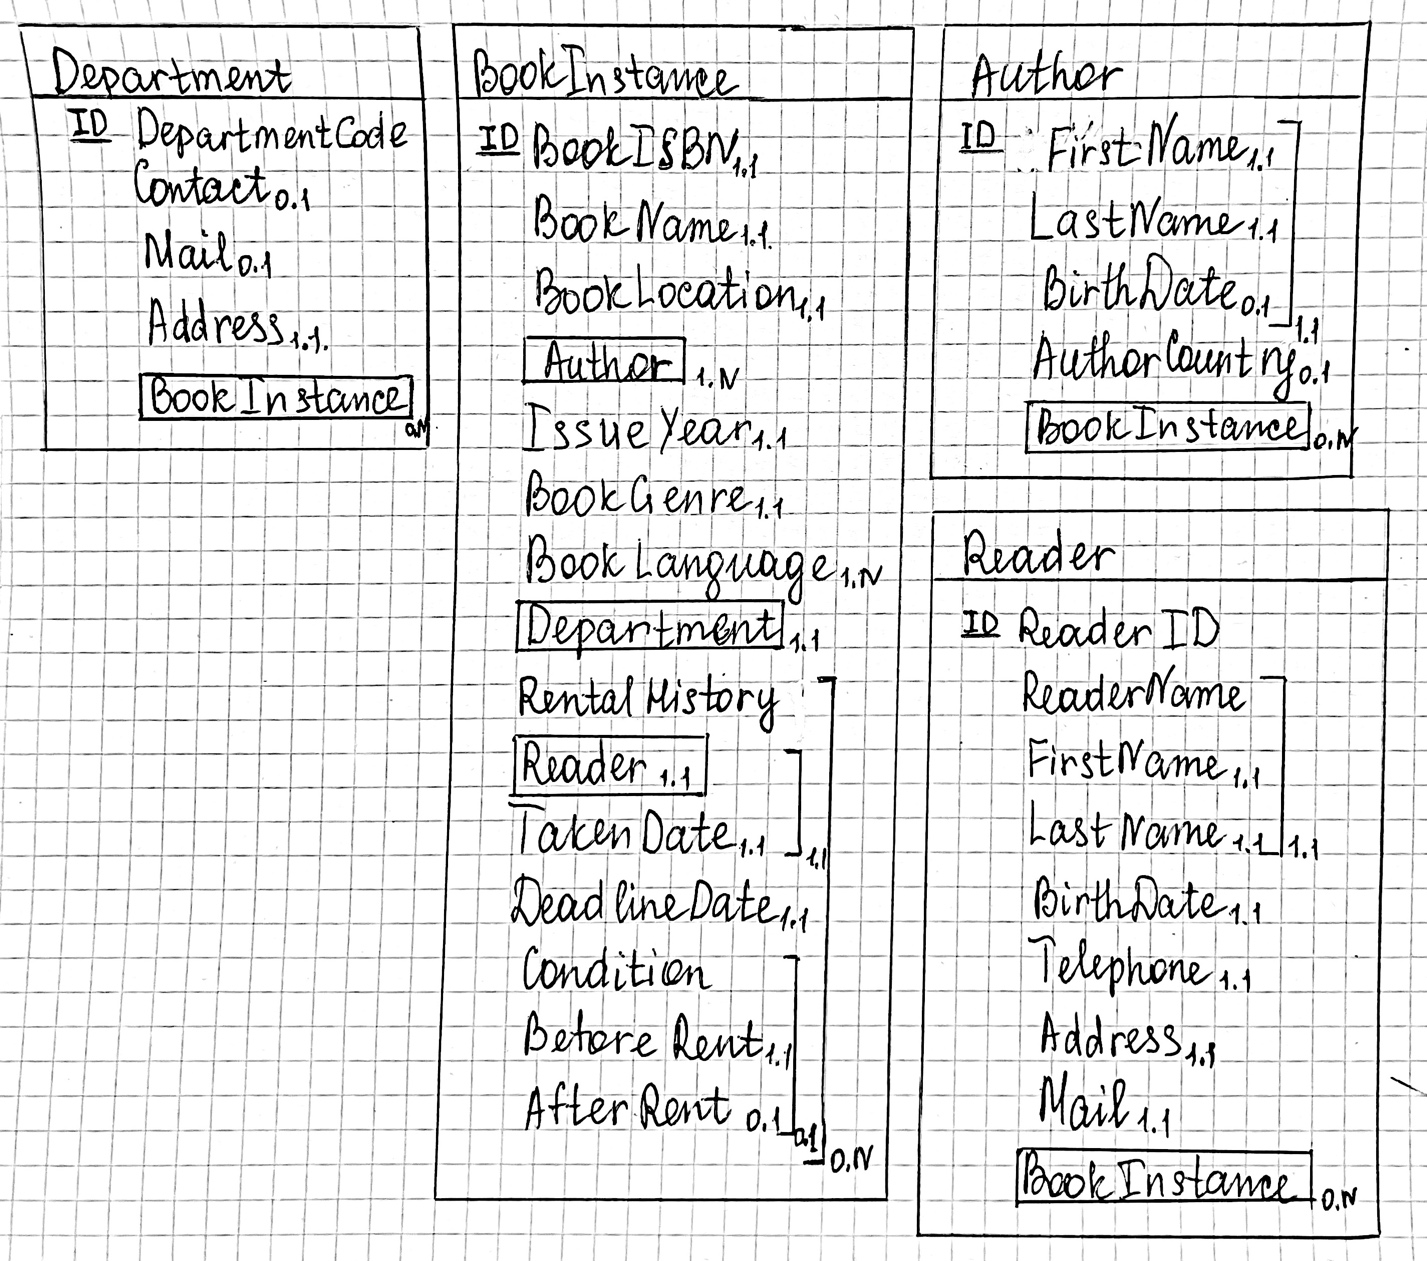 Department
ID DepartmentCode
Contact 0.1
Mail 0.1
Address 1.1.
BookInstance
0.N
BookInstance
ID BookISBN 1.1
BookName 1.1.
BookLocation 1.1
Author 1.N
IssueYear 1.1
BookGenre 1.1
BookLanguage 1.N
Department 1.1
Rental History
Reader 1.1
TakenDate 1.1
1.1
DeadlineDate 1.1
Condition
Before Rent 1.1
After Rent 0.1
0.1
0.N
Author
ID FirstName 1.1
LastName 1.1
BirthDate 0.1
1.1
AuthorCountry 0.1
BookInstance 0.N
Reader
ID ReaderID
ReaderName
FirstName 1.1
LastName 1.1 1.1
BirthDate 1.1
Telephone 1.1
Address 1.1
Mail 1.1
BookInstance 0.N